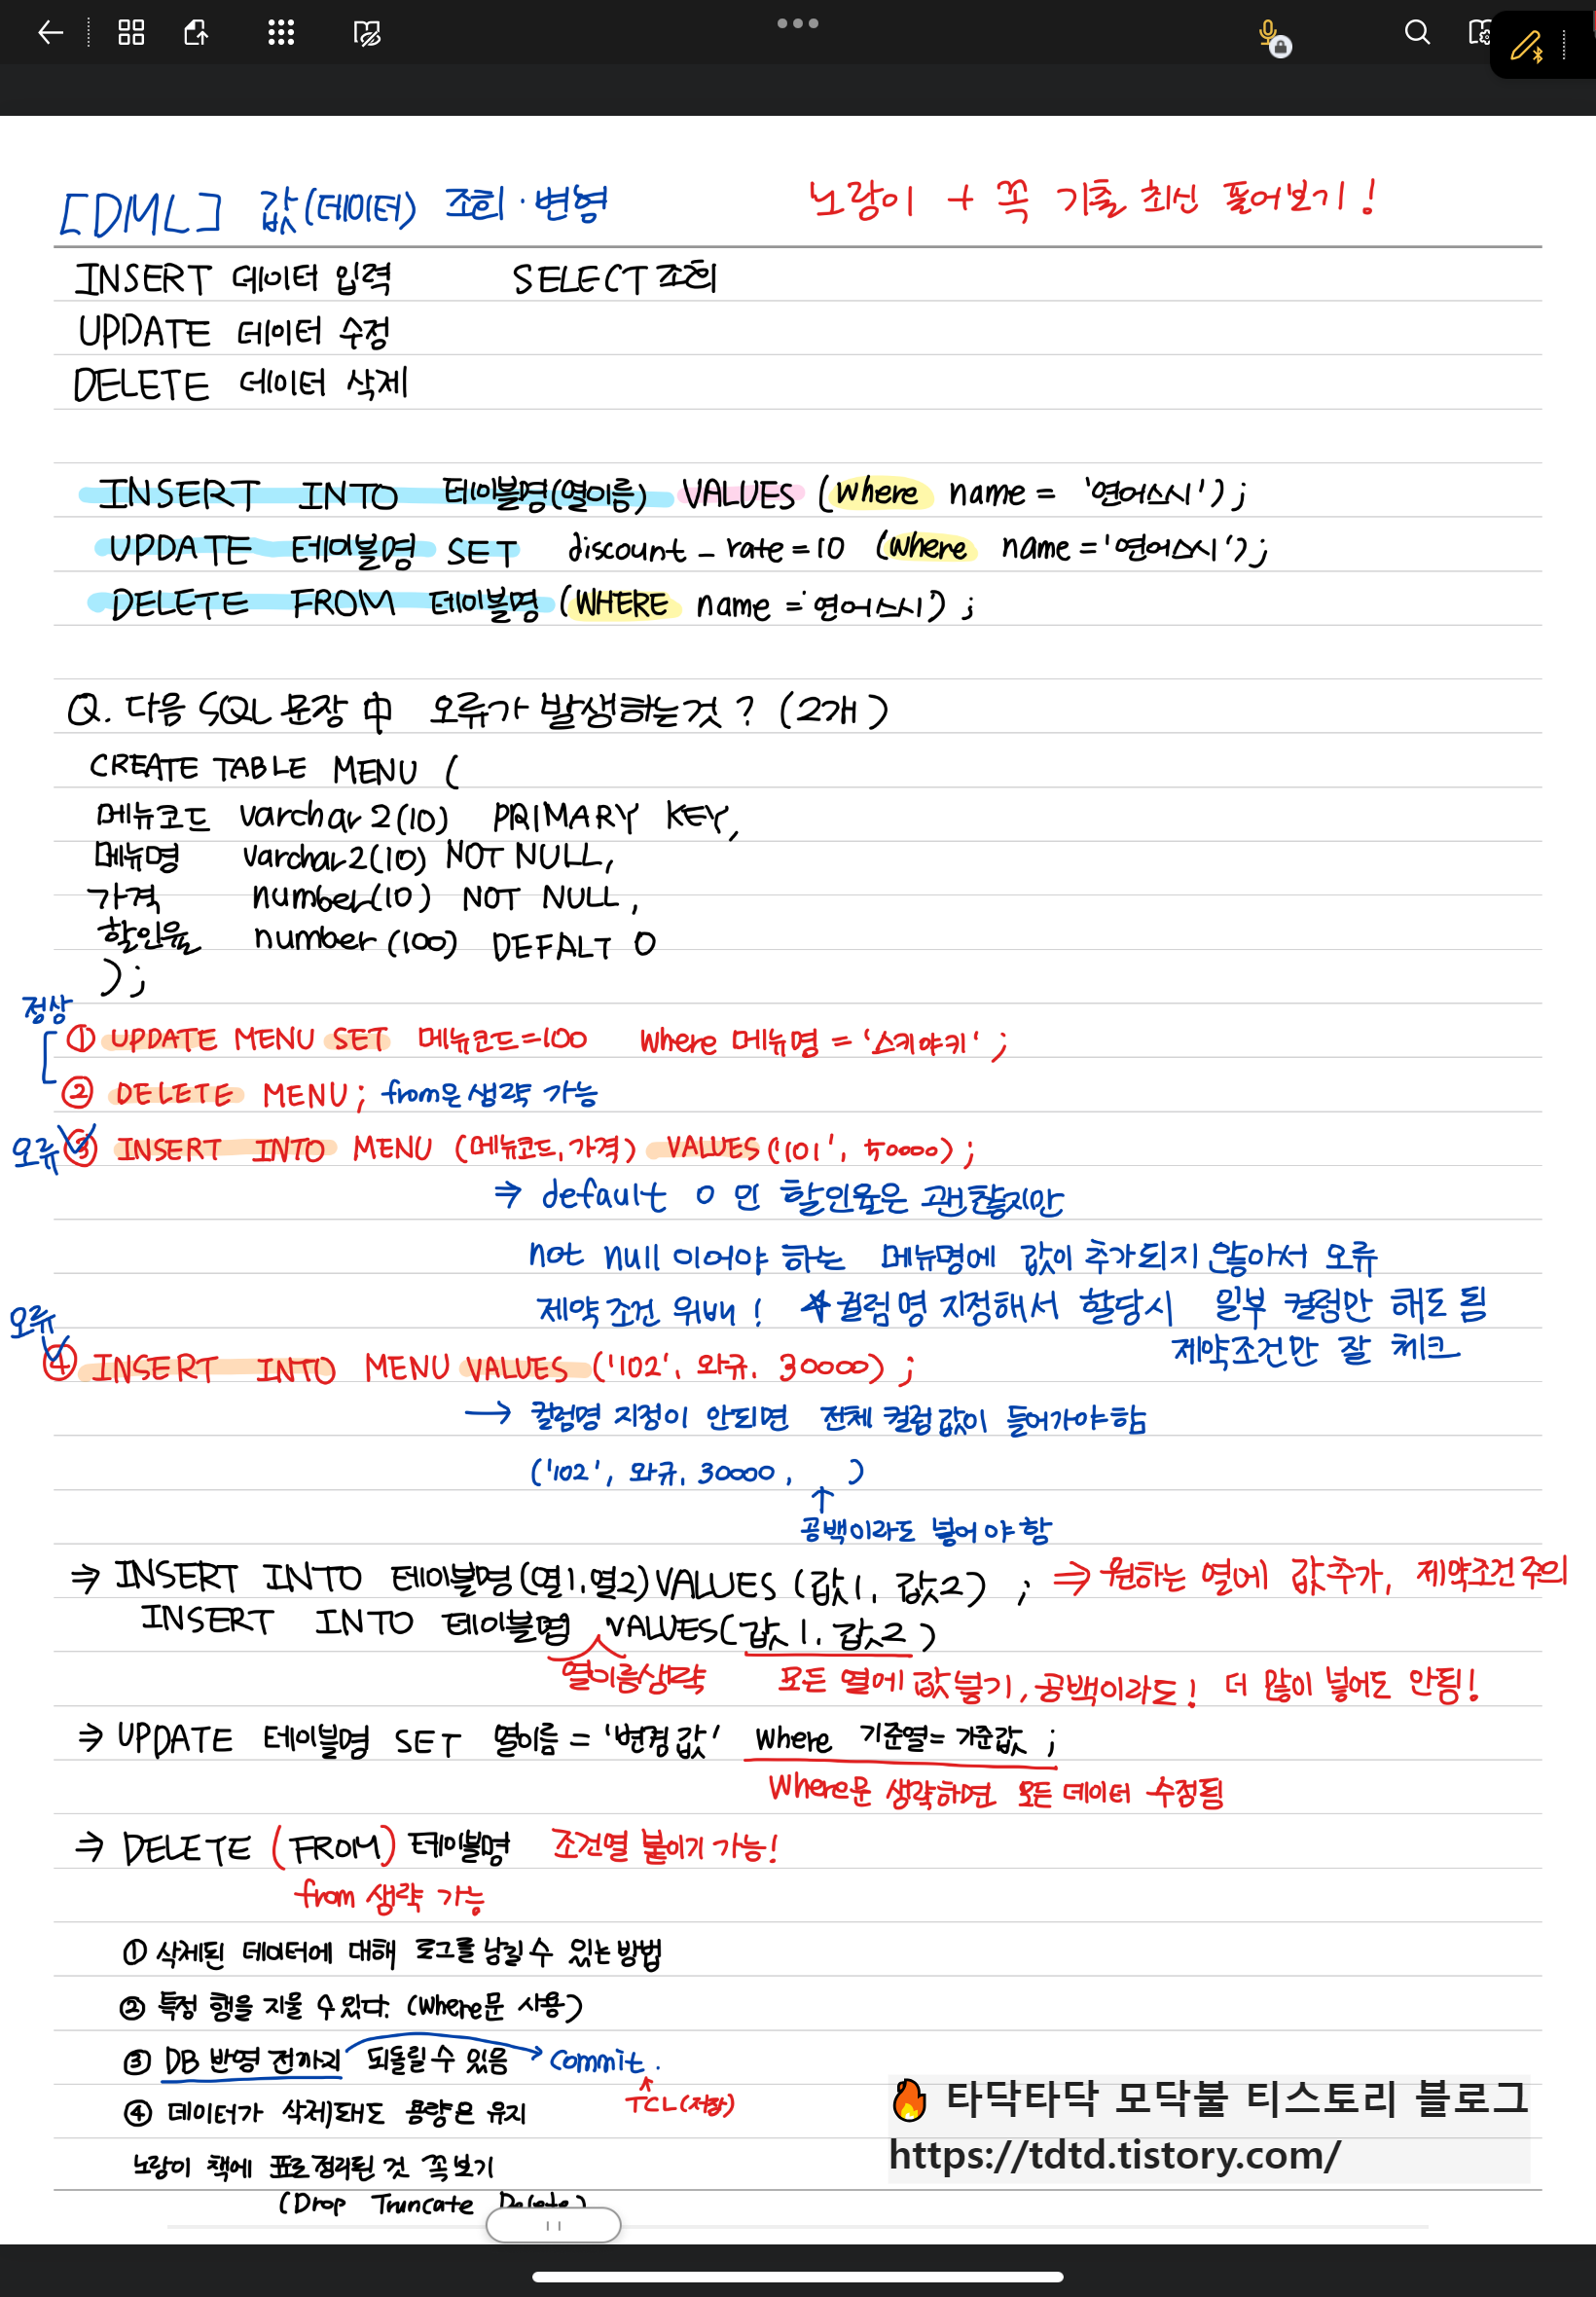 [DML] 값(데이터) 조회·변형
노랑이 + 꼭 기출 최신 풀어보기!
INSERT 데이터 입력 SELECT 조회
UPDATE 데이터 수정
DELETE 데이터 삭제
INSERT INTO 테이블명(열이름) VALUES (where name = '연어스시');
UPDATE 테이블명 SET discount_rate=10 (where name='연어스시');
DELETE FROM 테이블명 (WHERE name='연어스시);
Q. 다음 SQL 문장 中 오류가 발생하는것? (2개)
CREATE TABLE MENU (
메뉴코드 varchar2(10) PRIMARY KEY,
메뉴명 varchar2(10) NOT NULL,
가격 number(10) NOT NULL,
할인율 number(100) DEFALT 0
);
정상
① UPDATE MENU SET 메뉴코드=100 where 메뉴명='스키야키';
② DELETE MENU; from은 생략 가능
오류 ③ INSERT INTO MENU (메뉴코드, 가격) VALUES ('101', 50000);
⇒ default 0 인 할인율은 괜찮지만
not null 이어야 하는 메뉴명에 값이 추가되지 않아서 오류
제약 조건 위배! ☆컬럼명 지정해서 할당시 일부 컬럼만 해도 됨
제약조건만 잘 체크
오류 ④ INSERT INTO MENU VALUES ('102', 와규, 30000);
→ 컬럼명 지정이 안되면 전체 컬럼값이 들어가야함
('102', 와규, 30000, )
↑
공백이라도 넣어야 함
⇒ INSERT INTO 테이블명(열1,열2) VALUES (값1, 값2); ⇒ 원하는 열에 값추가, 제약조건주의
INSERT INTO 테이블명 VALUES(값1, 값2)
열이름생략 모든 열에 값넣기, 공백이라도! 더 많이 넣어도 안됨!
⇒ UPDATE 테이블명 SET 열이름='변경값' where 기준열=기준값;
where문 생략하면 모든 데이터 수정됨
⇒ DELETE (FROM) 테이블명 조건열 붙이기 가능!
from 생략 가능
① 삭제된 데이터에 대해 로그를 남길 수 있는 방법
② 특정 행을 지울 수 있다. (where문 사용)
③ DB 반영 전까지 되돌릴 수 있음 → Commit.
↑
TCL(저장)
④ 데이터가 삭제돼도 용량은 유지
노랑이 책에 표로 정리된 것 꼭 보기
(Drop Truncate Delete)
🔥 타닥타닥 모닥불 티스토리 블로그
https://tdtd.tistory.com/